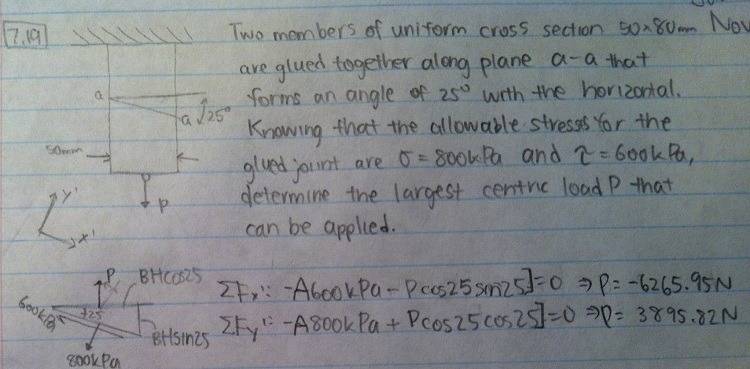 7.19
Two members of uniform cross section 50x80mm Nov
are glued together along plane a-a that
forms an angle of 25° with the horizontal.
Knowing that the allowable stresses for the
glued joint are σ=800kPa and τ=600kPa,
determine the largest centric load P that
can be applied.
a
a 25°
50mm
P
Y'
X'
P BHcos25
600kPa
25
BHsin25
800kPa
ΣFx': -A600kPa-Pcos25sin25]=0 ⇒P=-6265.95N
ΣFy': -A800kPa+Pcos25cos25]=0 ⇒P= 3895.82N